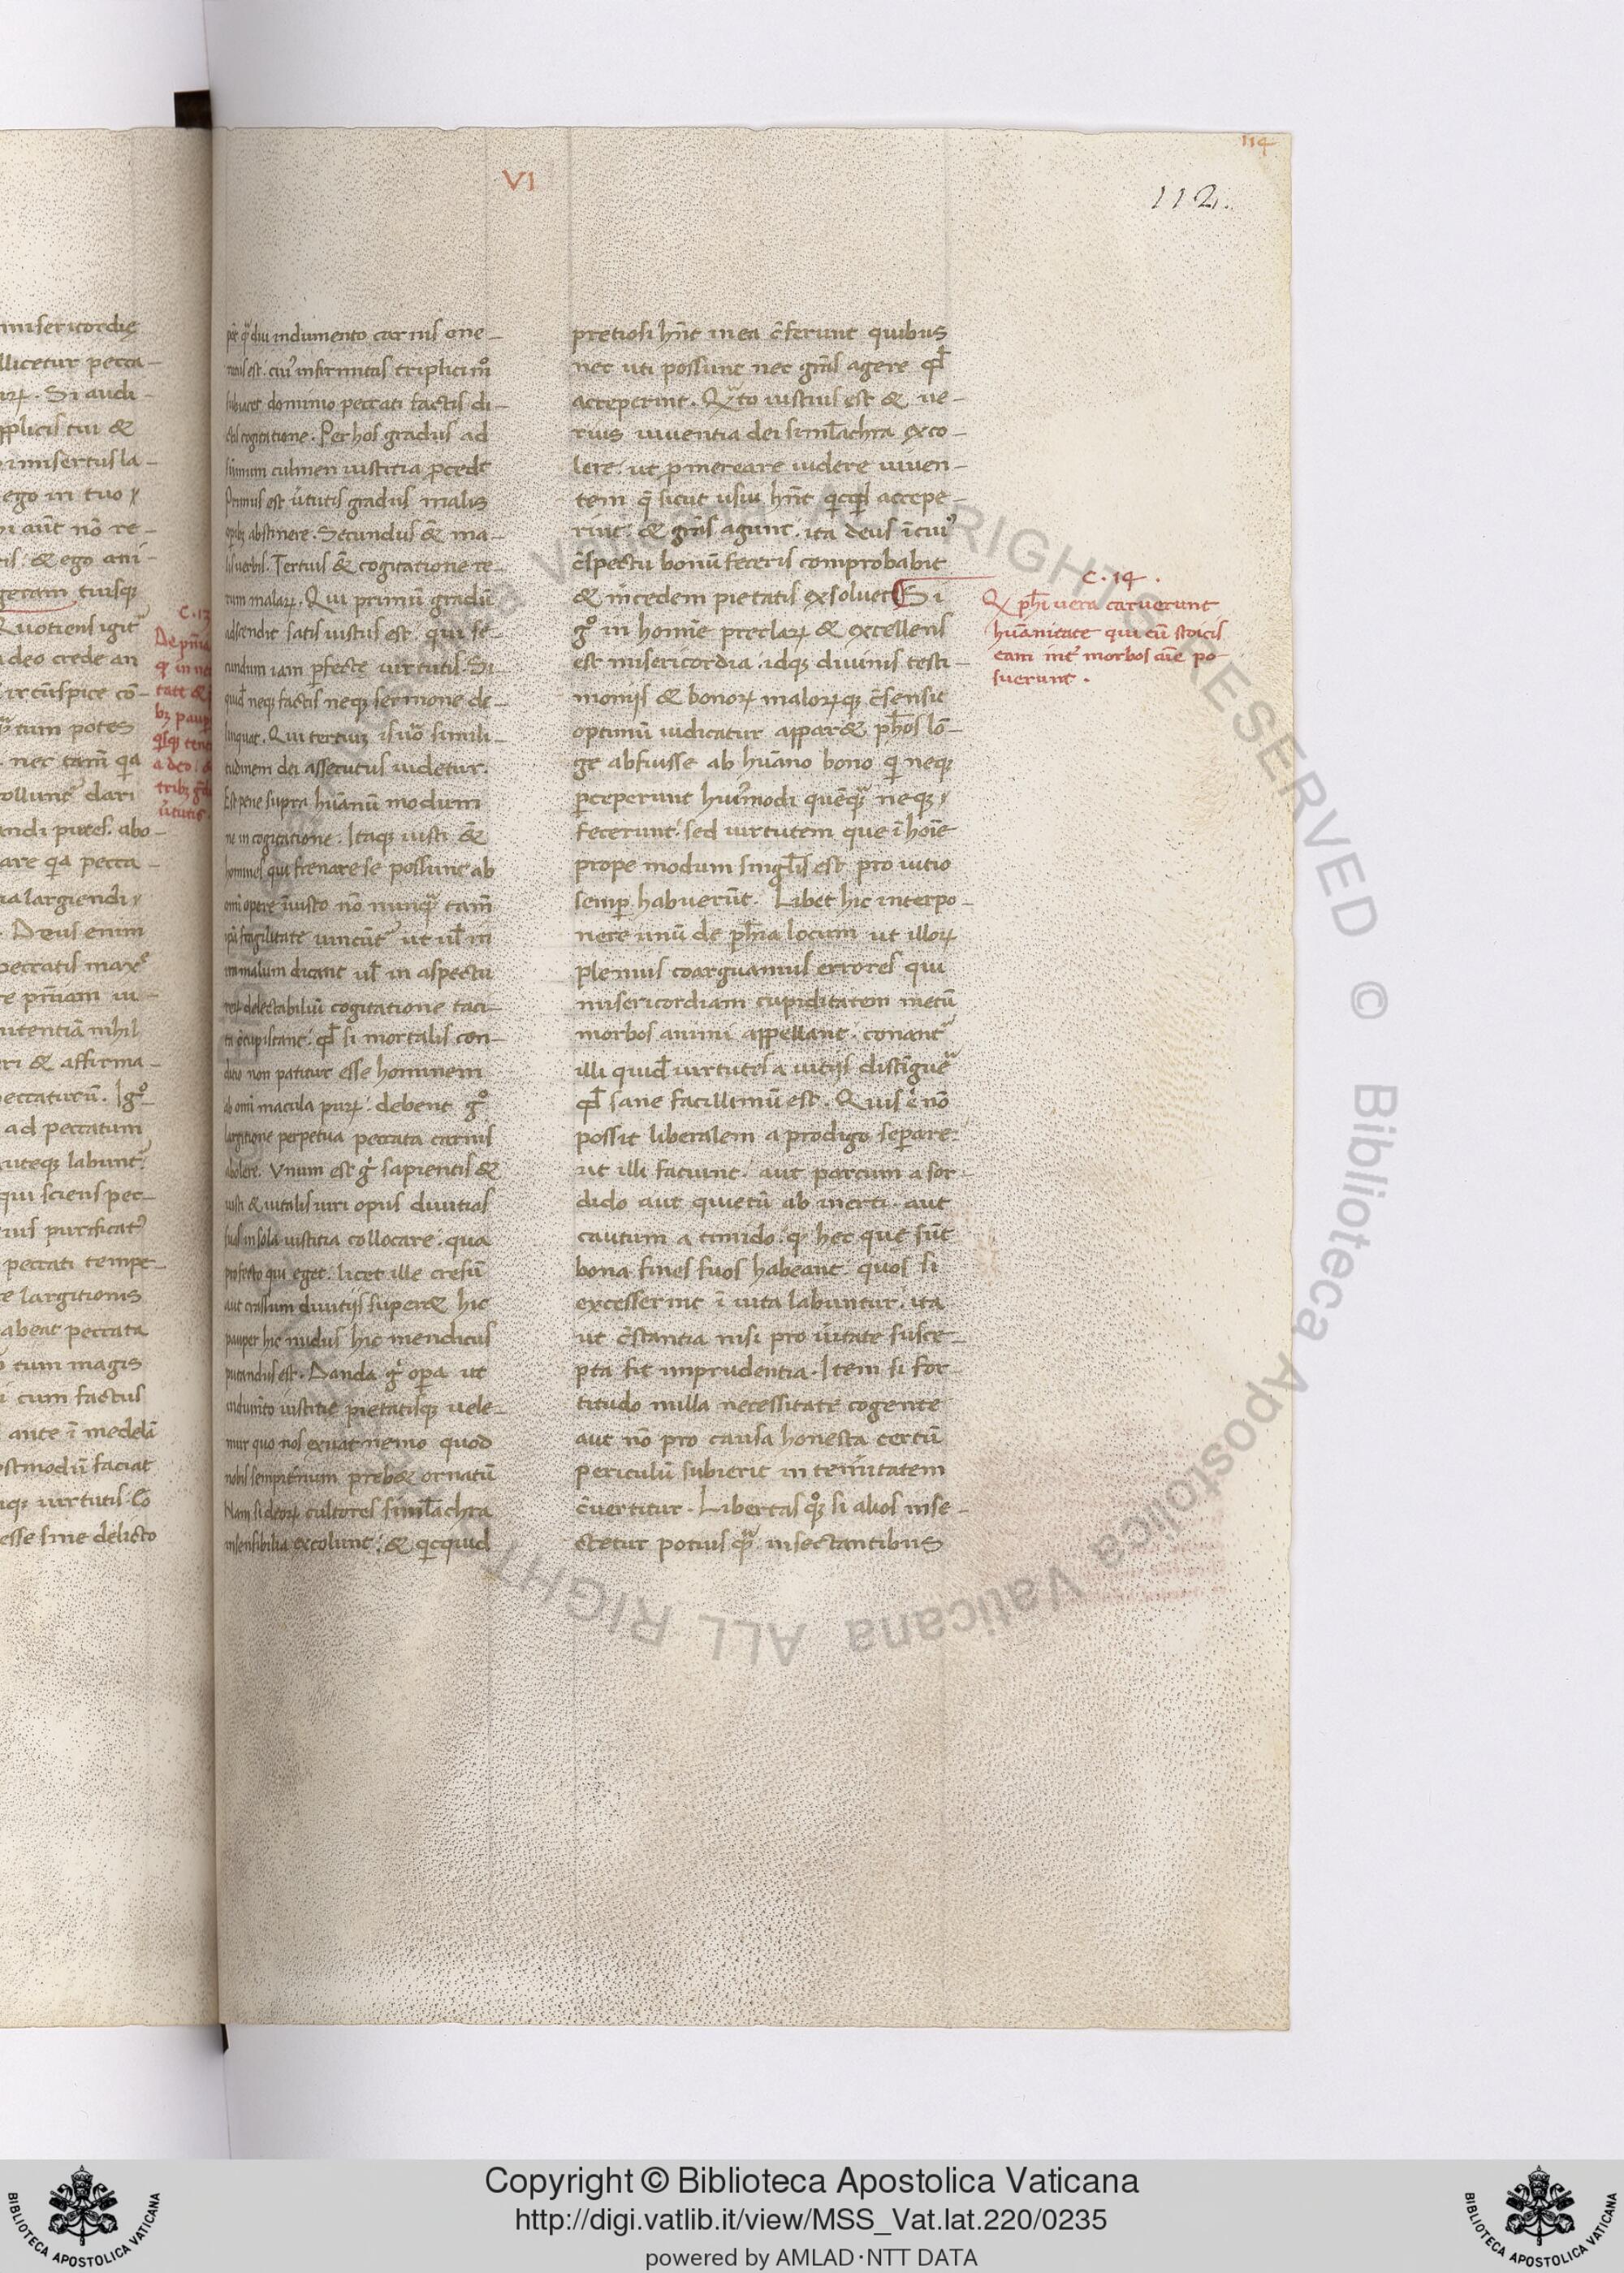 VI
114
112.
misericordię
llicetur pecca-
arꝝ. Si audi-
pplicis tui &
misertus la-
ego in tuo
geram tuisqꝫ
Quotiens igit᷑
a deo crede an
circũspice cõ-
tum potes
nec tam̃ qa
tollunt᷑ dari
andi putes. abo-
are qa pecca-
ia largiendi
Deus enim
peccatis max
re pñiam iu-
nitentiã nihil
ri & affirma-
peccaturũ. Igº
ad peccatum
uteqꝫ labunt᷑
qui sciens pec-
rius purificat᷑
peccati tempe-
te largitionis
abeat peccata
tum magis
i cum factus
ante ĩ medelã
ostmodũ faciat
iqꝫ uirtutis. Co
esse sine delicto
C. 13
De pñia
indumento carnis one-
ratus est. cuiꝰ infirmitas triplici mº
subiacet dominio peccati factis di-
ctis cogitatione. Per hos gradus ad
sũmum culmen iustitia ꝓcedit
Primus est ũtutis gradus malis
opibꝫ abstinere. Secundus & ma-
lis uerbis. Tertius & cogitatione re-
rum malarꝝ. Qui primũ gradũ
adscendit satis iustus est. qui se-
cundum iam ꝑfecte uirtutis. Si
quidẽ neqꝫ factis neqꝫ sermone de-
linquat. Qui tertium is uº simili-
tudinem dei assecutus uidetur.
Est pene supra huãnũ modum
ne in cogitatione. Itaqꝫ iusti &
homines qui frenare se possunt ab
omi opere ĩiusto nõ nunqꝫ tam̃
ipã fragilitate uincũt᷑ ut ul̃ in
ira malum dicant ul̃ in aspectu
rerꝝ delectabiliũ cogitatione taci-
ta ꝯcupiscant. qd̃ si mortalis con-
dicio non patitur esse hominem
ab omi macula purꝝ. debent gº
largitione perpetua peccata carnis
abolere. Vnum est g̃ sapientis &
iusti & uitalis uiri opus diuitias
suas in sola iustitia collocare. qua
profecto qui eget. licet ille cresũ
aut crassum diuitijs superet hic
pauper hic nudus hic mendicus
putandus est. Danda g̃ opa ut
indumẽto iustitie pietatisqꝫ uele-
mur quo nos exuat nemo quod
nobis sempiternum prebeat ornatũ
Nam si deorꝝ cultores siml̃achra
insensibilia excolunt. & qcquid
pretiosi hñt in ea c̃ferunt quibus
nec uti possunt nec grãs agere qd̃
acceperint. Qᵃto iustius est & ue-
rius uiuentia dei siml̃achra exco-
lere. ut ꝓmereare uidere uiuen-
tem q̃ sicut usui hñt qcqd accepe-
rint. & grãs agunt. ita deus ĩ cuiꝰ
c̃spectu bonũ feceris comprobabit
& m̃cedem pietatis exsoluet Si
gº in homĩe preclarꝝ & excellens
est misericordia. idqꝫ diuinis testi-
monijs & bonorꝝ malorꝝqꝫ c̃sensit
optimũ iudicatur apparet ph̃os lõ-
ge abfuisse ab huãno bono qi neqꝫ
ꝑceperunt huiꝰmodi quẽqᵃ neqꝫ
fecerunt. sed uirtutem que ĩ hoĩe
prope modum singl̃is est pro uitio
semꝑ habuerũt. Libet hic interpo-
nere unũ de ph̃ia locum ut illorꝝ
plenius coarguamus errores qui
misericordiam cupiditatem metũ
morbos animi appellant. conant᷑
illi quid̃ uirtutes a uitijs distĩguẽ
qd̃ sane facillimũ est. Quis ẽ nõ
possit liberalem a prodigo seꝑare.
ut illi faciunt. aut parcum a sor-
dido aut quietũ ab inerti. aut
cautum a timido. q hec que sũt
bona fines suos habeant. quos si
excesserint ĩ uita labuntur. ita
ut c̃stantia nisi pro ũitate susce-
pta sit imprudentia. Item si for-
titudo nulla necessitate cogente
aut nõ pro causa honesta certũ
periculũ subierit in temitatem
c̃uertitur. Libertas qqꝫ si alios inse-
ctetur potius qᵃ insectantibus
C. 14.
Q ph̃i uera caruerunt
huãnitate qui cũ stoicis
eam int᷑ morbos aĩe po-
suerunt.
ALL RIGHTS RESERVED © Biblioteca Apostolica Vaticana
BIBLIOTECA APOSTOLICA VATICANA
Copyright © Biblioteca Apostolica Vaticana
http://digi.vatlib.it/view/MSS_Vat.lat.220/0235
powered by AMLAD·NTT DATA
BIBLIOTECA APOSTOLICA VATICANA